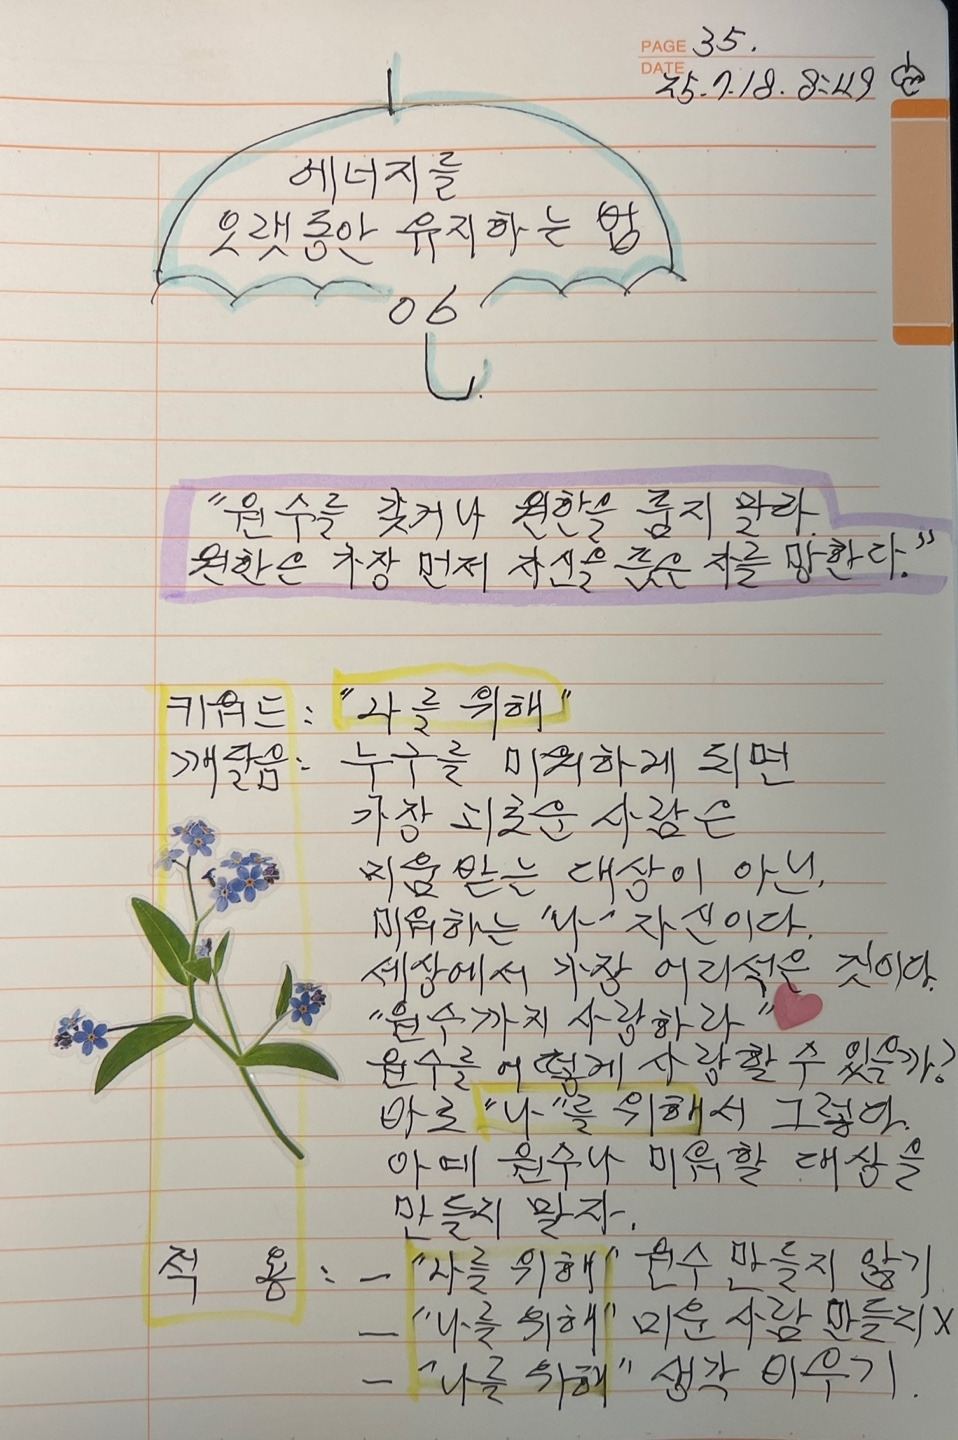 PAGE 35.
DATE 25.7.18. 8:49
에너지를
오랫동안 유지하는 법
06
"원수를 갖거나 원한을 품지 말라.
원한은 가장 먼저 자신을 품은 자를 망한다."
키워드 : "나를 위해"
깨달음 : 누구를 미워하게 되면
가장 괴로운 사람은
미움 받는 대상이 아닌,
미워하는 "나" 자신이다.
세상에서 가장 어리석은 것이다.
"원수까지 사랑하라"
원수를 어떻게 사랑할 수 있을까?
바로 "나"를 위해서 그렇다.
아예 원수나 미워할 대상을
만들지 말자.
적 용 : - "나를 위해" 원수 만들지 않기
- "나를 위해" 미운 사람 만들기 X
- "나를 위해" 생각 비우기.